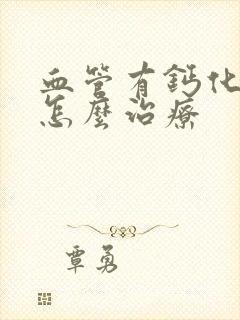 血管有鈣化
怎麼治療
覃勇